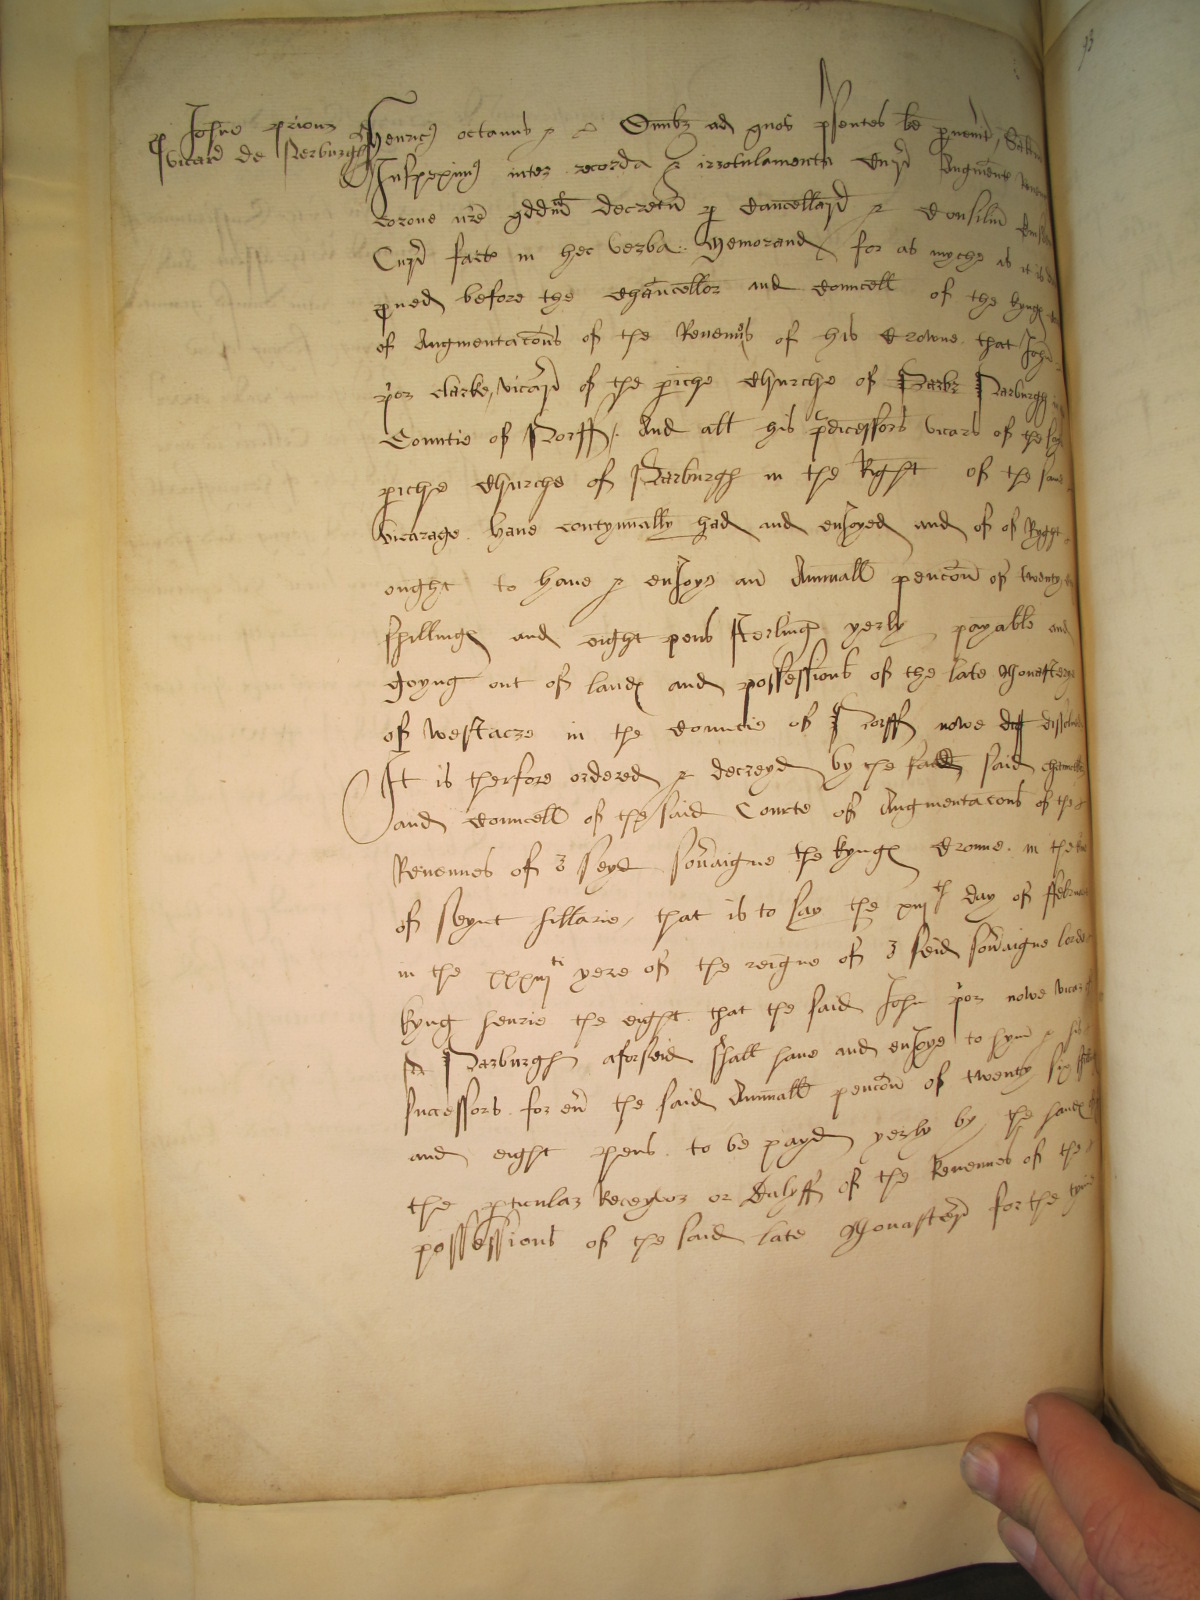 p Johne Priour
vicar de Narburgh
Henric octauus &c Omibz ad quos psentes lre puenint, Saltm
Inspeximus inter recorda & irrotulamenta Cur Augment
corone nre qdd decretu p Cancellar & Consiliu
Cur fact in hec verba. Memorand for as myche as it is
pued before the Chauncellor and Councell of the kyngs
of Augmentacons of the Revenus of his Crowne that John
Por clarke, vicar of the piche Churche of Narburgh
Countie of Norff. And all his pdicessors vicars of the
piche Churche of Narburgh in the Right of the same
vicarage have contynually had and enJoyed and of of Ryght
ought to have & enJoye an Annuall pencon of twenty
shillings and eight pens sterling yerly payable and
goyng out of lands and possessions of the late Monastery
of Westacre in the Countie of Norff nowe
It is therfore ordered & decreyd by the said
and Councell of the said Courte of Augmentacons of the
Revenues of 3 seyd sovaigne the kyngs Crowne in the
of Seynt Hillarie, that is to say the xiijth day of
in the yere of the reigne of 3 seid sovaigne lorde
kyng Henrie the eight that the said John Por nowe vicar
Narburgh aforseid shall have and enJoye to hym & his
Successors for ev the said Annuall pencon of twenty six
and eight pens to be payd yerly by the hands
the pticular Receyvor or Balyff of the Revenues of the
possessions of the said late Monastery for the tyme